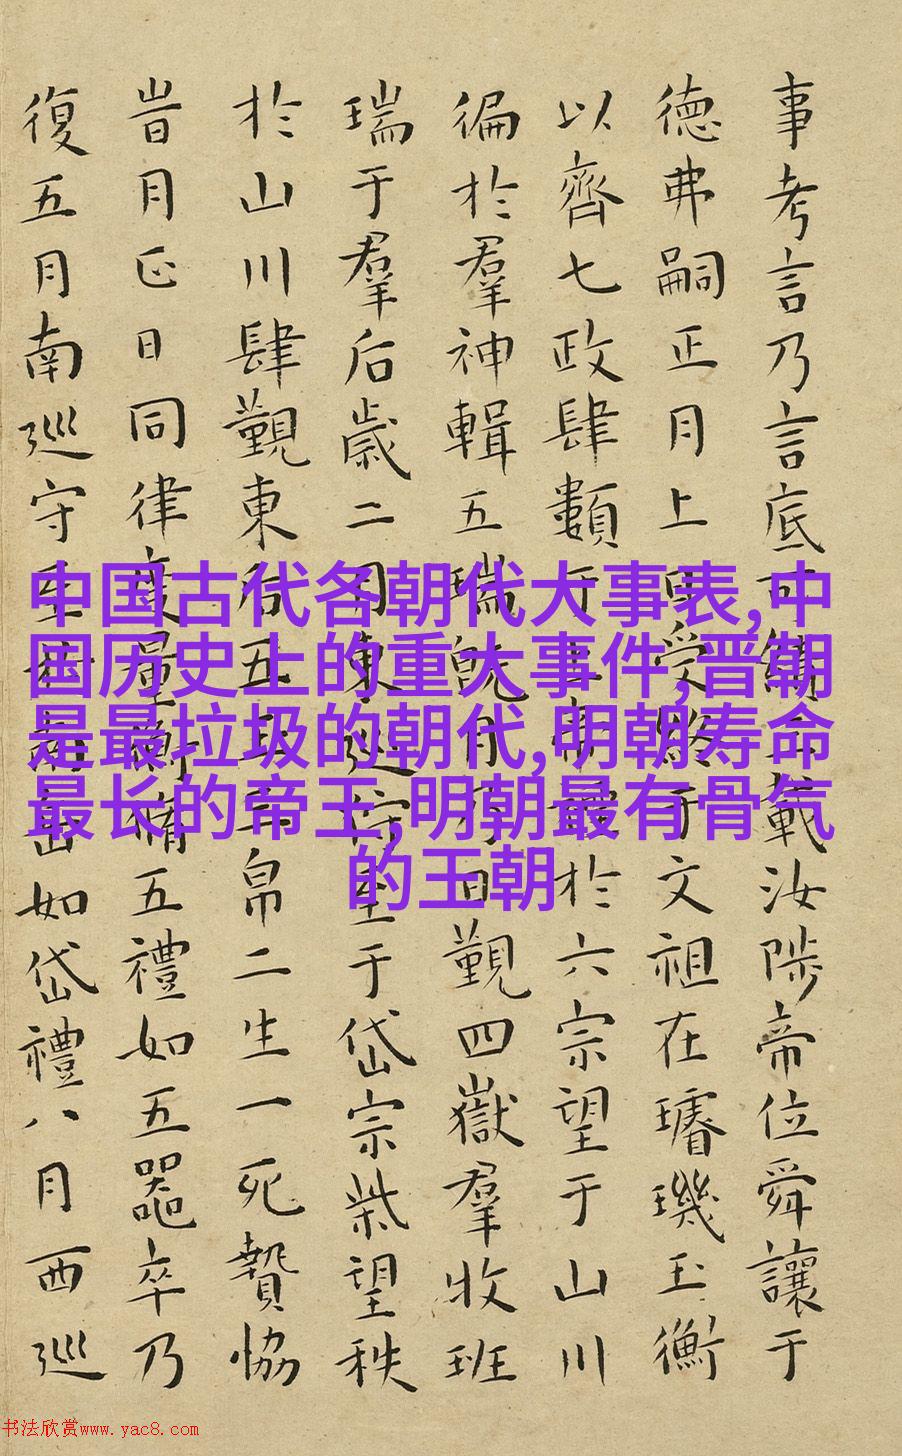 事考言乃言底可績三載汝陟帝位舜讓于
德弗嗣正月上日受終于文祖在璿璣玉衡
以齊七政肆類于上帝禋於六宗望于山川
徧於羣神輯五瑞既月乃日覲四嶽羣牧班
瑞于羣后歲二月東巡狩至于岱宗柴望秩
於山川肆覲東后五玉三帛二生一死贄協
旹月正日同律度量衡脩五禮如五器卒乃
復五月南巡守至于南岳如岱禮八月西巡
中国古代各朝代大事表,中
国历史上的重大事件,晋朝
是最垃圾的朝代,明朝寿命
最长的帝王,明朝最有骨气
的王朝
书法欣赏www.yac8.com